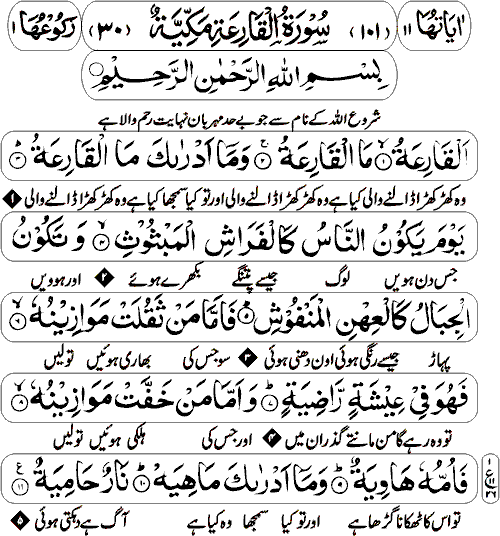 اٰيَاتُهَا ۱۱ (۱۰۱) سُوْرَةُ الْقَارِعَةِ مَكِّيَّةٌ (۳۰) رُكُوْعُهَا ۱
بِسْمِ اللهِ الرَّحْمٰنِ الرَّحِيْمِ
شروع اللہ کے نام سے جو بے حد مہربان نہایت رحم والا ہے
اَلْقَارِعَةُ ۱ مَا الْقَارِعَةُ ۲ وَمَآ اَدْرٰىكَ مَا الْقَارِعَةُ ۳
وہ کھڑکھڑا ڈالنے والی کیا ہے وہ کھڑکھڑا ڈالنے والی اور تو کیا سمجھا کیا ہے وہ کھڑکھڑا ڈالنے والی ۱
يَوْمَ يَكُوْنُ النَّاسُ كَالْفَرَاشِ الْمَبْثُوْثِ ۴ وَ تَكُوْنُ
جس دن ہویں لوگ جیسے پتنگے بکھرے ہوئے ۲ اور ہوویں
الْجِبَالُ كَالْعِهْنِ الْمَنْفُوْشِ ۵ فَاَمَّا مَنْ ثَقُلَتْ مَوَازِيْنُهٗ ۶
پہاڑ جیسے رنگی ہوئی اون دھنی ہوئی ۳ سو جس کی بھاری ہوئیں تولیں
فَهُوَ فِيْ عِيْشَةٍ رَّاضِيَةٍ ۷ وَ اَمَّا مَنْ خَفَّتْ مَوَازِيْنُهٗ ۸
تو وہ رہے گا من مانتے گذران میں ۴ اور جس کی ہلکی ہوئیں تولیں
فَاُمُّهٗ هَاوِيَةٌ ۹ وَمَآ اَدْرٰىكَ مَاهِيَهْ ۱۰ نَارٌ حَامِيَةٌ ۱۱
تو اس کا ٹھکانا گڑھا ہے اور تو کیا سمجھا وہ کیا ہے آگ ہے دہکتی ہوئی ۵